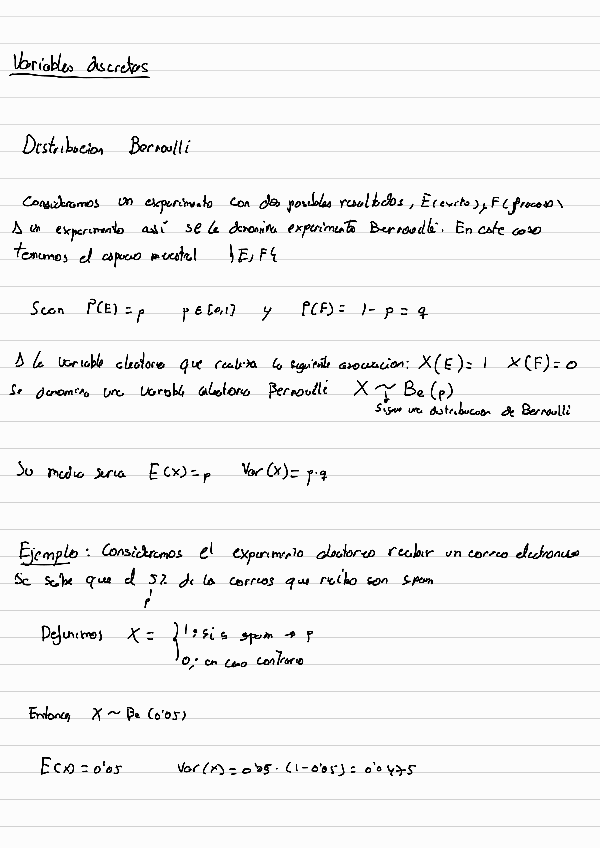 Variables discretas
Distribucion Bernoulli
Consideramos un experimento con dos posibles resultados, E(exito) y F(fracaso)
A un experimento así se le denomina experimento Bernoulli. En este caso
tenemos el espacio muestral {E, F}
Sean P(E) = p p ∈ [0,1] y P(F) = 1 - p = q
A la variable aleatoria que realiza la siguiente asociacion: X(E) = 1 X(F) = 0
Se denomina una variable aleatoria Bernoulli X ~ Be(p)
Sigue una distribucion de Bernoulli
Su media seria E(X) = p Var(X) = p·q
Ejemplo: Consideramos el experimento aleatorio recibir un correo electronico
Se sabe que el 5% de los correos que recibo son spam
p
Definimos X = { 1; si es spam → p
0; en caso contrario
Entonces X ~ Be(0'05)
E(X) = 0'05 Var(X) = 0'05 · (1-0'05) = 0'0475